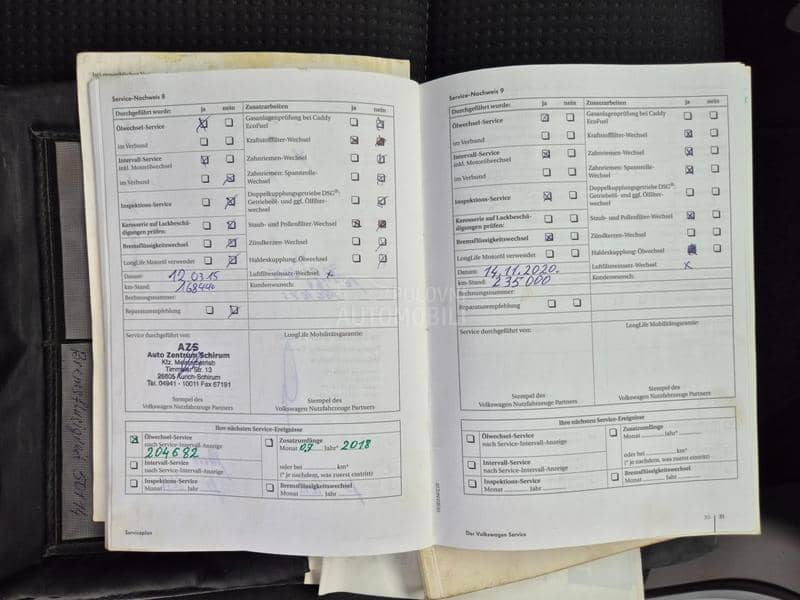 Service-Nachweis 8
Durchgeführt wurde: ja nein Zusatzarbeiten ja nein
Ölwechsel-Service
Gasanlagenprüfung bei Caddy EcoFuel
im Verbund
Kraftstofffilter-Wechsel
Intervall-Service
inkl. Motorölwechsel
Zahnriemen-Wechsel
im Verbund
Zahnriemen: Spannrolle-Wechsel
Inspektions-Service
Doppelkupplungsgetriebe DSG®:
Getriebeöl- und ggf. Ölfilter-
wechsel
Karosserie auf Lackbeschä-
digungen prüfen:
Staub- und Pollenfilter-Wechsel
Bremsflüssigkeitswechsel
Zündkerzen-Wechsel
LongLife Motoröl verwendet
Haldexkupplung: Ölwechsel
Datum: 12.03.15
Luftfiltereinsatz-Wechsel x
km-Stand: 168440
Kundenwunsch:
Rechnungsnummer:
Reparaturempfehlung
Service durchgeführt von:
LongLife Mobilitätsgarantie:
AZS
Auto Zentrum Schirum
Kfz. Meisterbetrieb
Timmeler Str. 13
26605 Aurich-Schirum
Tel. 04941 - 10011 Fax 67191
Stempel des
Volkswagen Nutzfahrzeuge Partners
Stempel des
Volkswagen Nutzfahrzeuge Partners
Ihre nächsten Service-Ereignisse
Ölwechsel-Service
nach Service-Intervall-Anzeige
204682
Zusatzumfänge
Monat 03 Jahr* 2018
oder bei km*
(* je nachdem, was zuerst eintritt)
Intervall-Service
nach Service-Intervall-Anzeige
Inspektions-Service
Monat Jahr
Bremsflüssigkeitswechsel
Monat Jahr
Serviceplan
Service-Nachweis 9
Durchgeführt wurde: ja nein Zusatzarbeiten ja nein
Ölwechsel-Service
Gasanlagenprüfung bei Caddy
EcoFuel
im Verbund
Kraftstofffilter-Wechsel
Intervall-Service
inkl. Motorölwechsel
Zahnriemen-Wechsel
im Verbund
Zahnriemen: Spannrolle-
Wechsel
Inspektions-Service
Doppelkupplungsgetriebe DSG®:
Getriebeöl- und ggf. Ölfilter-
wechsel
Karosserie auf Lackbeschä-
digungen prüfen:
Staub- und Pollenfilter-Wechsel
Bremsflüssigkeitswechsel
Zündkerzen-Wechsel
LongLife Motoröl verwendet
Haldexkupplung: Ölwechsel
Datum: 14.11.2020.
Luftfiltereinsatz-Wechsel x
km-Stand: 235000
Kundenwunsch:
Rechnungsnummer:
Reparaturempfehlung
Service durchgeführt von:
LongLife Mobilitätsgarantie:
Stempel des
Volkswagen Nutzfahrzeuge Partners
Stempel des
Volkswagen Nutzfahrzeuge Partners
Ihre nächsten Service-Ereignisse
Ölwechsel-Service
nach Service-Intervall-Anzeige
Zusatzumfänge
Monat Jahr*
oder bei km*
(* je nachdem, was zuerst eintritt)
Intervall-Service
nach Service-Intervall-Anzeige
Inspektions-Service
Monat Jahr
Bremsflüssigkeitswechsel
Monat Jahr
Der Volkswagen Service
30 31
POLOVNI
AUTOMOBILI